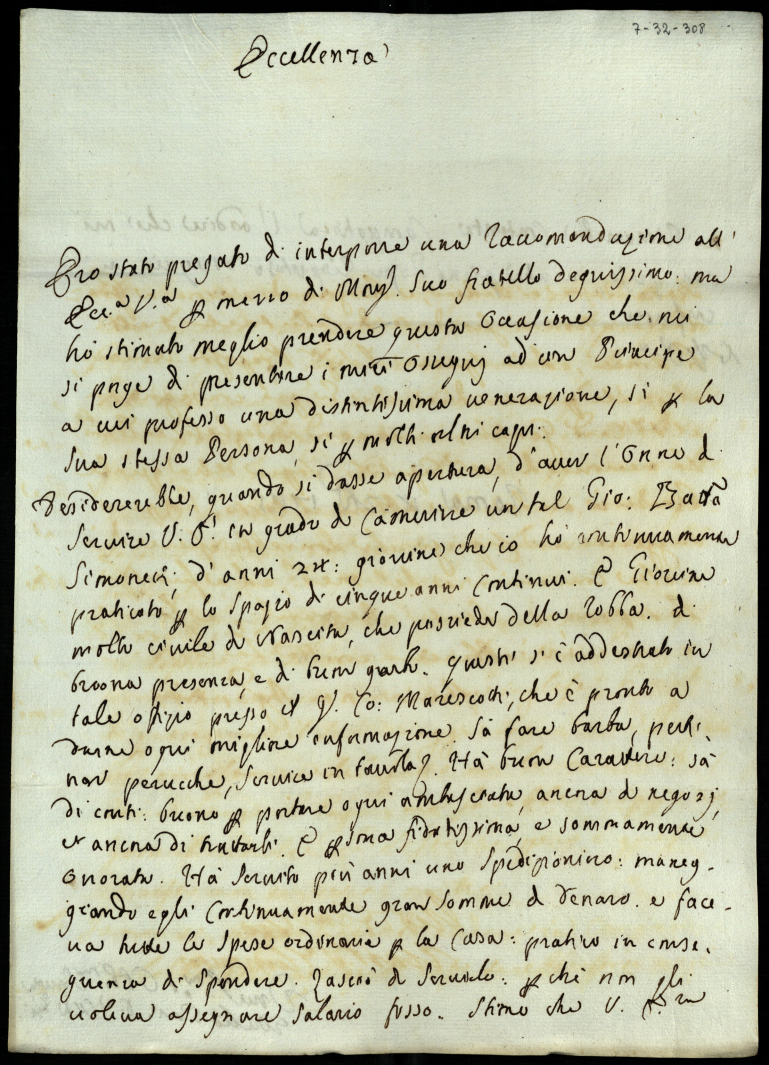 7-32-308
Eccellenza
Ero stato pregato di interporre una raccomandazione all'
Ecc.a V.a per mezzo di Mons. Suo fratello degnissimo: ma
hò stimato meglio prendere questa occasione che mi
si porge di presentare i miei ossequij ad un Principe
a cui professo una distintissima venerazione, si per la
sua stessa Persona, si per molti altri capi.
Desidererebbe, quando si dasse apertura, d'aver l'onore d
servire V. E. in grado di Cameriere un tal Gio: Batta
Simonetti, d'anni 24: giovine che io hò continuamente
praticato per lo spazio di cinque anni continui. È Giovine
molto civile di Nascita, che possiede della robba. di
buona presenza, e di buon garbo. questi si è addestrato in
tale offizio presso il Co: Marescotti, che è pronto a
darne ogni migliore informazione. Sà fare barba, petti-
nar perucche, servire in tavola. Hà buon Carattere: sà
di conti: buono per portare ogni ambasciata, ancora d negozj,
et ancora di trattarli. È persona fidatissima, e sommamente
onorata. Hà servito più anni uno Spedizioniero: maneg-
giando egli continuamente gran somme d denaro. e face-
va tutte le spese ordinarie per la Casa: pratico in conse-
guenza di spendere. Lasciò d servirlo: per chè non gli
voleva assegnare salario fisso. Stimo che V.